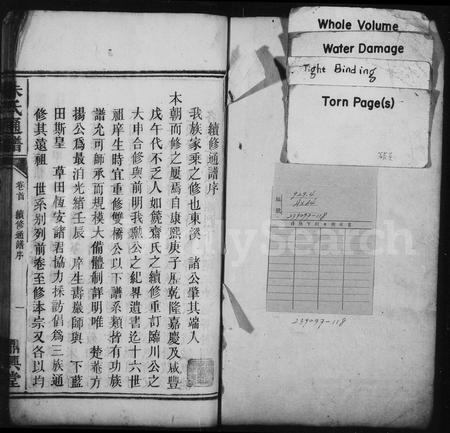 續修通譜序
我族家乘之修也東溪 諸公肇其端入
本朝而修之屢焉自康熙庚子歷乾隆嘉慶及咸豐
戊午代不乏人如篪齋氏之續修重訂臨川公之
大申合修與前明我瓢公之紀畧遺書迄十六世
祖庠生時宜重修雙橋公以下譜系類皆有功族
譜尤可師承而規模大備體制詳明唯 楚菴方
揚公爲最洎光緖壬辰 庠生壽巖師與 下藍
田斯皇 草田恆安諸君協力採訪倡爲三族通
修其遠祖 世系别列前卷至修本宗又各以均
朱氏通譜
卷首 續修通譜序
一
鼎興堂
Whole Volume
Water Damage
Tight Binding
Torn Page(s)
929.4
239097-118
239097-118
FamilySearch